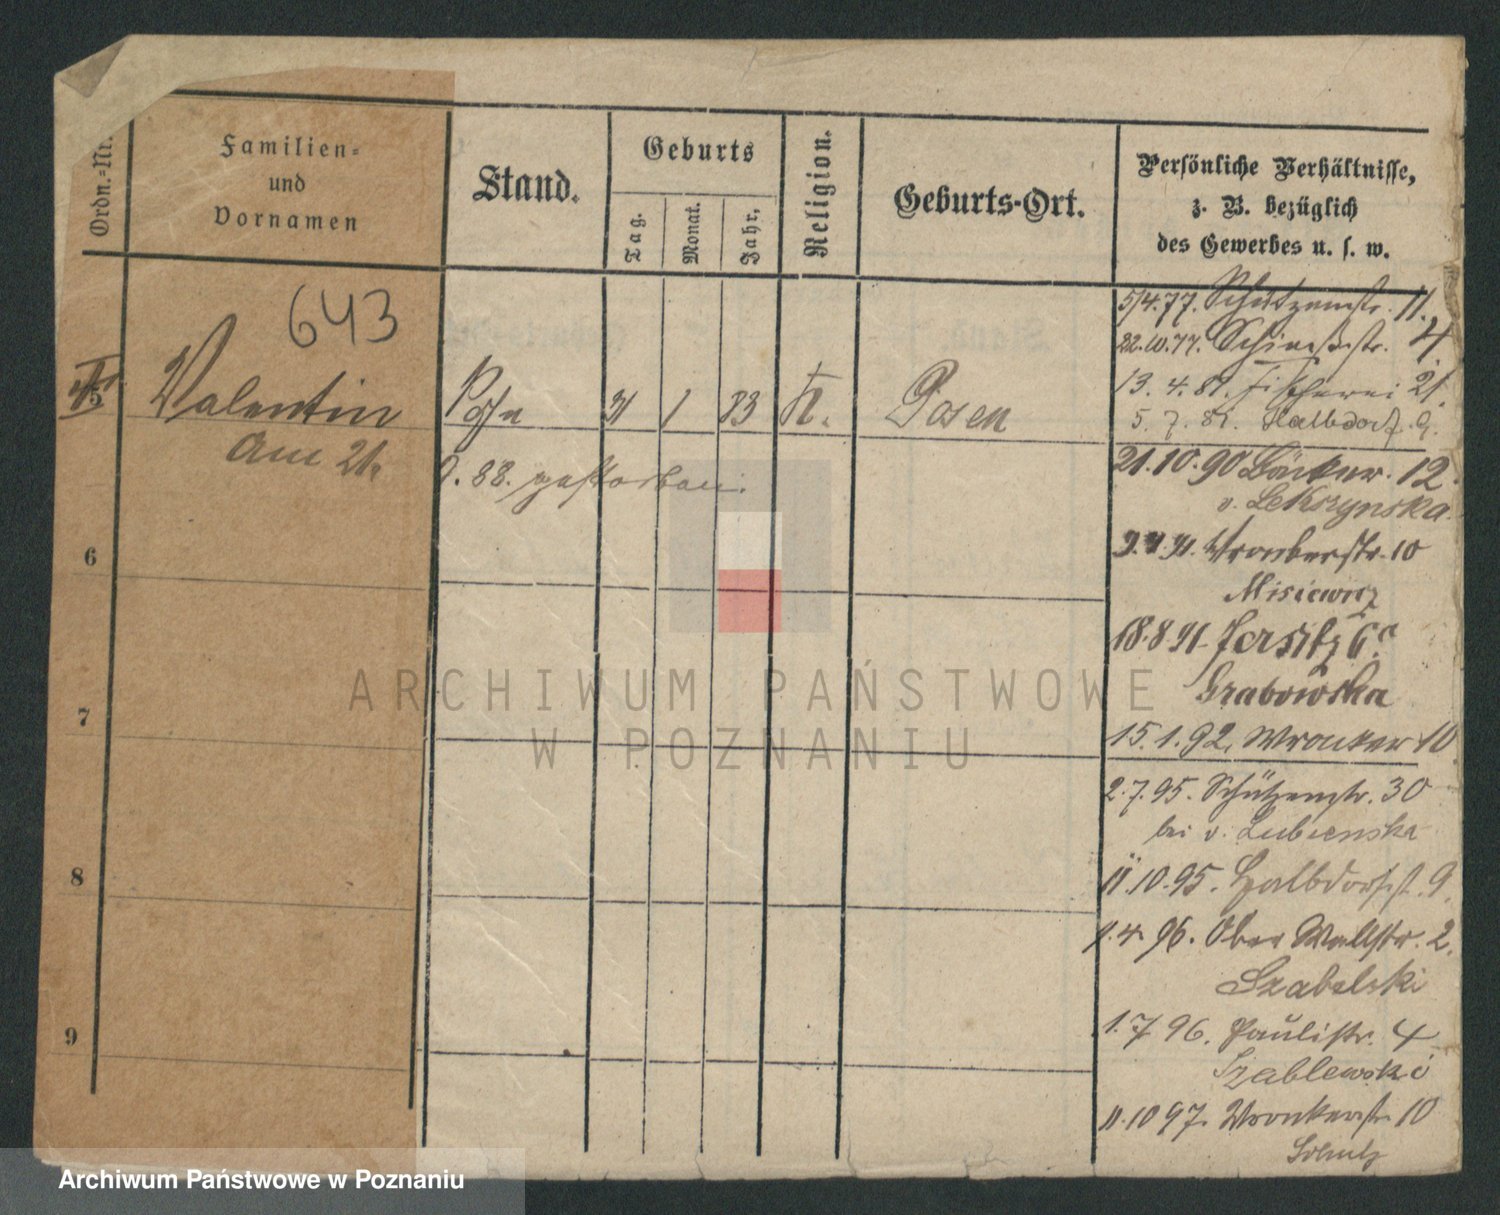 Ordn.-Nr.
Familien-
und
Vornamen
Stand.
Geburts
Tag.
Monat.
Jahr.
Religion.
Geburts-Ort.
Persönliche Verhältnisse,
z. B. bezüglich
des Gewerbes u. s. w.
643
5
Valentin
Sohn
31
1
83
K.
Posen
am 21.
9. 88. gestorben.
5/4.77. Schützenstr. 11.
22.10.77. Schiessstr. 4.
13. 4. 81. Fischerei 21.
5. 7. 81. Halbdorf. 9.
21.10.90 Bäcker. 12.
v. Lekszynska.
Wronkerstr. 10
Misiewicz
18.8 91. Jersitz 6.a
Grabowska
15.1.92. Wronker 10
2.7.95. Schützenstr. 30
bei v. Lubienska
11.10.95. Halbdorfst. 9.
1.4.96. Ober Wallstr. 2.
Szabelski
1.7.96. Paulistr. 4
Szablewski
11.10 97. Wronkerstr. 10
Schulz
6
7
8
9
ARCHIWUM PAŃSTWOWE
W POZNANIU
Archiwum Państwowe w Poznaniu